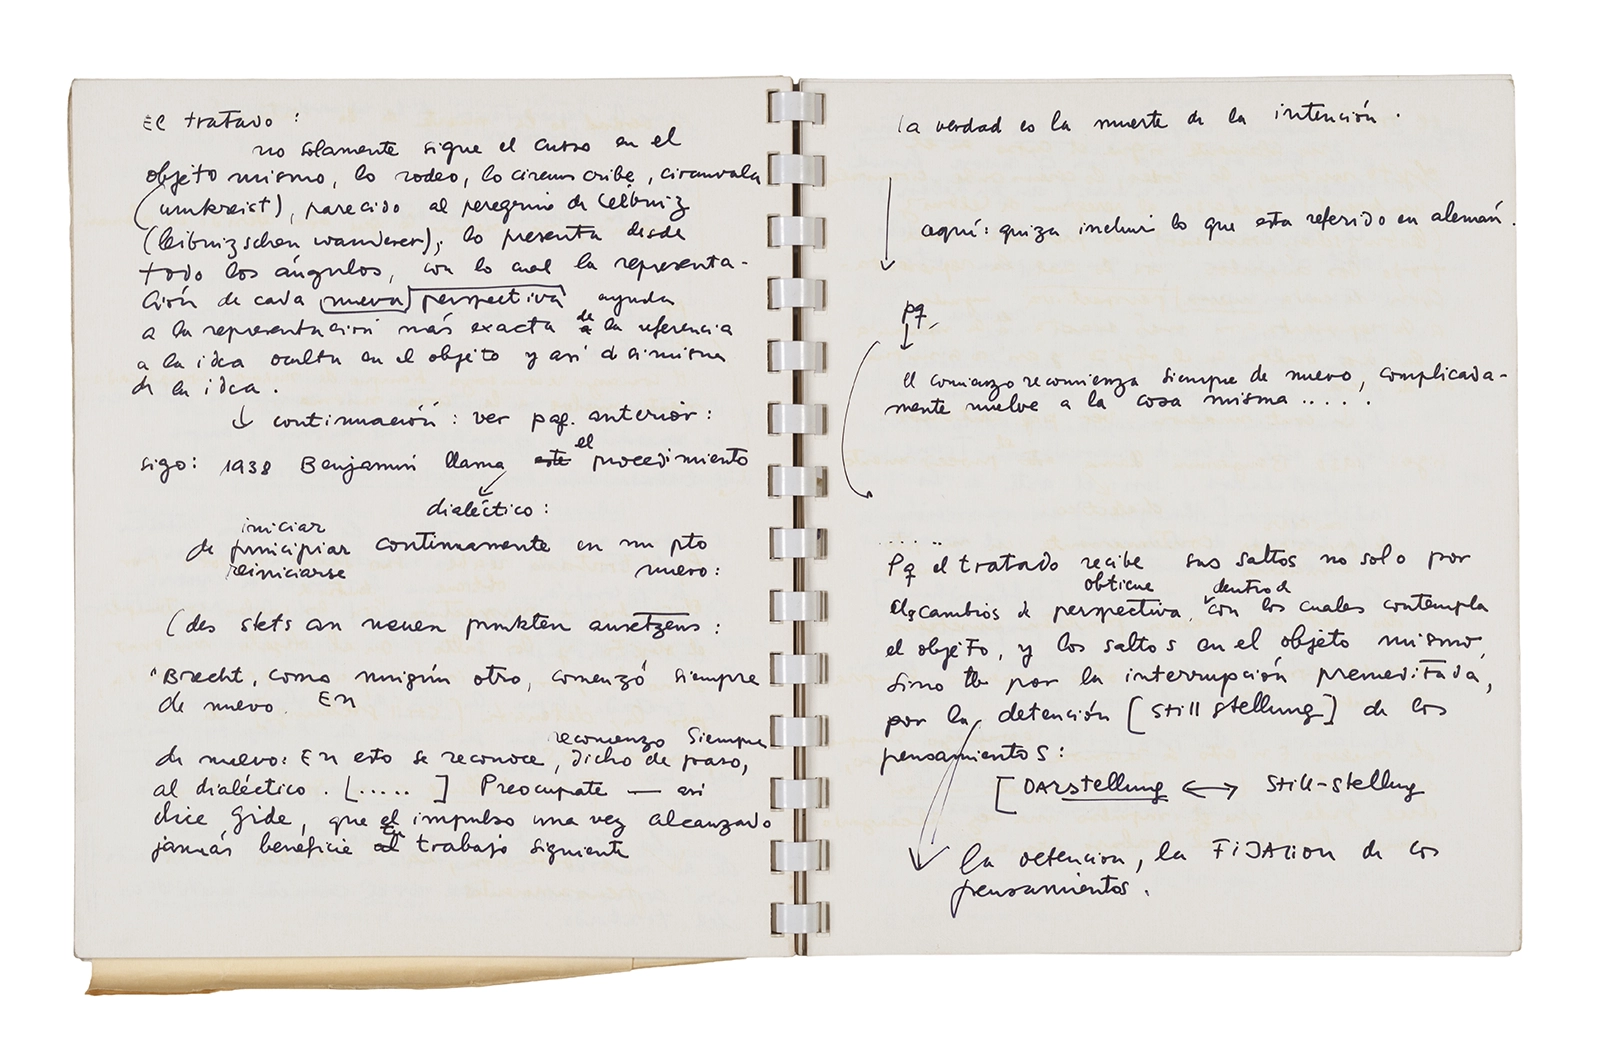 El tratado :
no solamente sigue el curso en el
objeto mismo, lo rodeo, lo circunscribe, circunvala
(umkreist), parecido al peregrino de Leibniz
(leibnizschen wanderer); lo presenta desde
todo los ángulos, con lo cual la representa-
ción de cada (nueva) perspectiva ayuda
a la representación más exacta de la referencia
a la idea oculta en el objeto y así
de la idea.
↓ continuación : ver pag. anterior :
sigo : 1938 Benjamin llama este el procedimiento
dialéctico :
iniciar
de principiar continuamente en un pto
reiniciarse nuevo :
(des stets an neuen punkten ansetzens :
"Brecht, como ningún otro, comenzó siempre
de nuevo. En
recomenzo siempre
de nuevo: En esto se reconoce, dicho de paso,
al dialéctico. [.....] Preocupate — así
dice Gide, que el impulso una vez alcanzado
jamás beneficie al tu trabajo siguiente
la verdad es la muerte de la intención.
aquí: quiza incluir lo que esta referido en alemán.
pq.
↓
el comienzo recomienza siempre de nuevo, complicada-
mente vuelve a la cosa misma ....
.....
Pq el tratado recibe sus saltos no solo por
obtiene dentro d
los cambios d perspectiva, con los cuales contempla
el objeto, y los saltos en el objeto mismo,
sino por la interrupción premeditada,
por la detención [still stellung] de los
pensamientos :
[DARstellung ↔ Still-stellung
la detencion, la FIJACION de los
pensamientos.